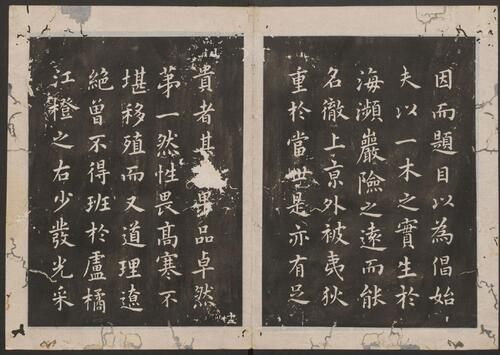 因而題目以為倡始
夫以一木之實生於
海瀕巖險之遠而能
名徹上亰外被夷狄
重於當世是亦有足
貴者其果品卓然
苐一然性畏髙寒不
堪移殖而又道理遼
絶曾不得班於盧橘
江橙之右少發光采